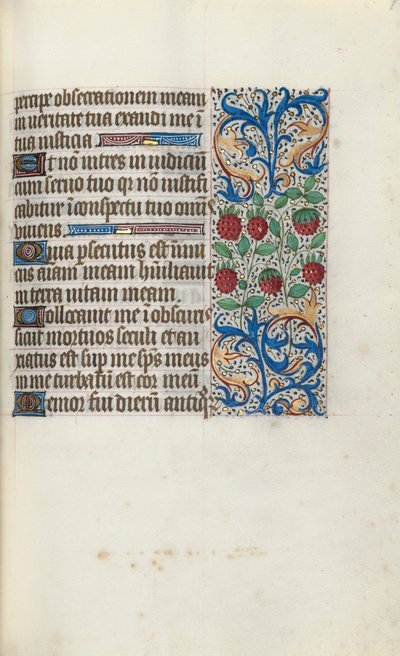 percipe obsecrationem meam
in veritate tua exaudi me ī
tua iusticia
Et nō intres in iudiciū
cum servo tuo qr nō iustifi
cabitur ī conspectu tuo omīs
vivens
Quia psecutus est inim
cus aīam meam hūiliavit
in terra vitam meam.
Collocavit me ī obscuris
sicut mortuos seculi et an
xiatus est sup me sps meus
in me turbatū est cor meū
Memor fui dierū antiqr